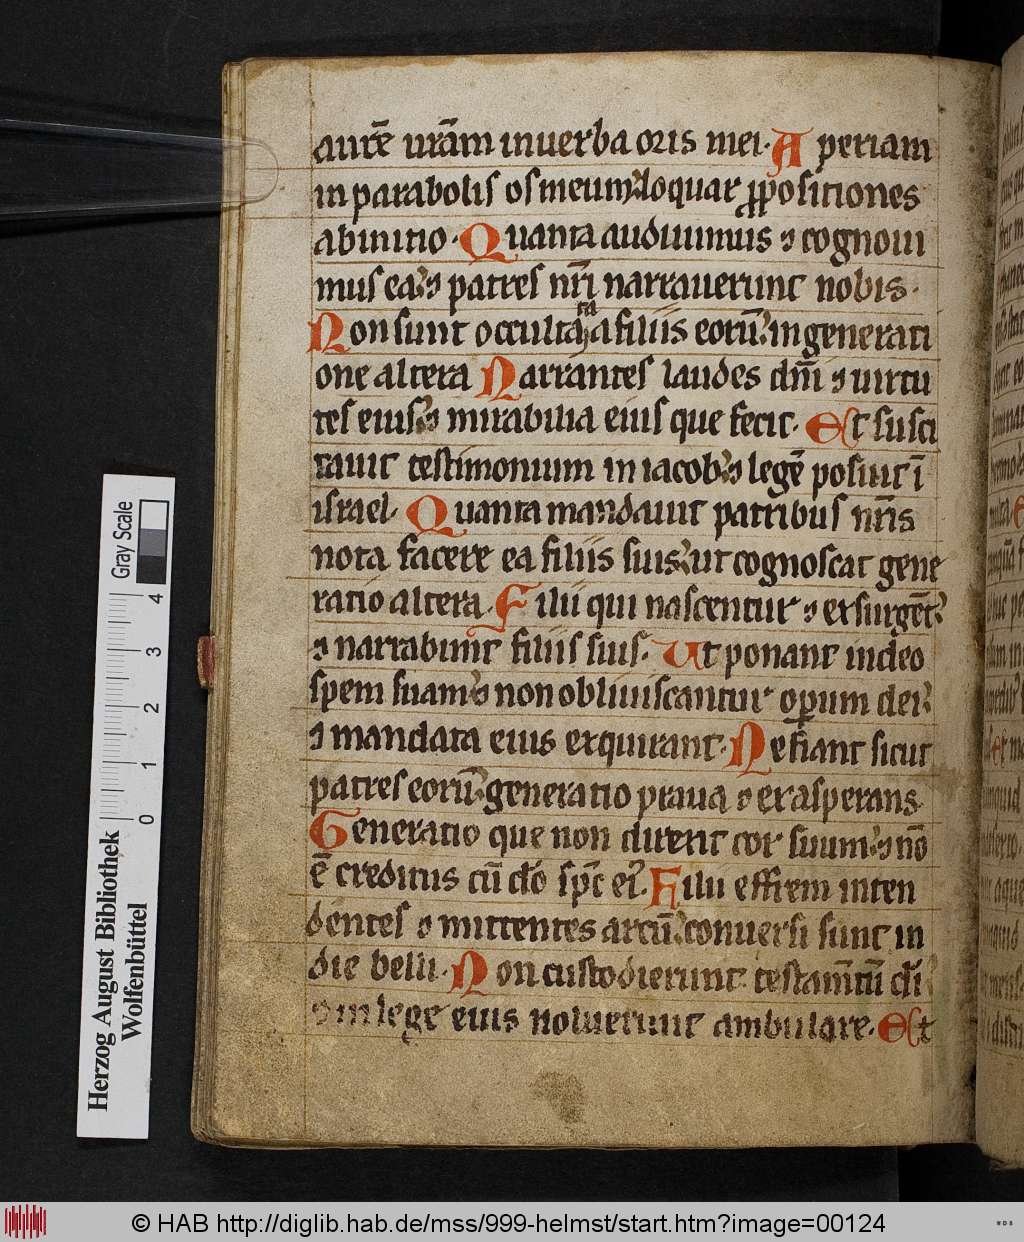 aurē urām in uerba oris mei. Aperiam
in parabolis os meum: loquar ꝓpositiones
ab initio. Quanta audiuimus ⁊ cognoui
mus ea: ⁊ patres nr̄i narrauerunt nobis.
Non sunt occulta ta a filiis eorū: in generati
one altera Narrantes laudes dn̄i ⁊ uirtu
tes eius: ⁊ mirabilia eius que fecit. Et susci
tauit testimonium in iacob: ⁊ legē posuit ī
israel. Quanta mandauit patribus nr̄is
nota facere ea filiis suis: ut cognoscat gene
ratio altera. Filii qui nascentur ⁊ exsurgēt:
⁊ narrabunt filiis suis. Ut ponant in deo
spem suam: ⁊ non obliuiscantur oꝑum dei:
⁊ mandata eius exquirant. Ne fiant sicut
patres eorū: generatio praua ⁊ exasperans.
Generatio que non direxit cor suum: ⁊ nō
ē creditus cū dō spc̄ ei'. Filii effrem inten
dentes ⁊ mittentes arcū: conuersi sunt in
die belli. Non custodierunt testam̄tū dī:
⁊ in lege eius noluerunt ambulare. Et
Gray Scale
4 3 2 1 0
Herzog August Bibliothek
Wolfenbüttel
© HAB http://diglib.hab.de/mss/999-helmst/start.htm?image=00124
WDB